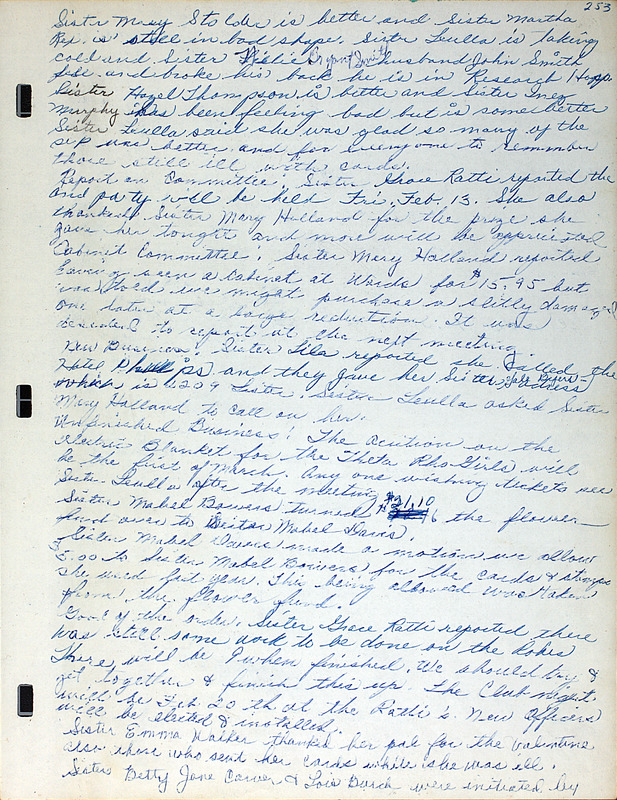 253
Sister Mary Stolder is better and Sister Martha
Rex is still in bad shape. Sister Luella is taking
cold and Sister Bryant Smith husband John Smith
fell and broke his back he is in Research Hosp.
Sister Hazel Thompson is better and Sister Inez
Murphy has been feeling bad but is some better
Sister Luella said she was glad so many of the
were better and for everyone to remember
those still ill with cards.
Report on Committee. Sister Grace Ratti reported the
card party will be held Fri. Feb. 13. She also
thanked Sister Mary Holland for the prize she
gave her tonight and more will be appreciated
Cabinet Committee: Sister Mary Holland reported
having seen a cabinet at Wards for $15.95 but
was told we might purchase a slitly damaged
one later at a large reduction. It was
to report at the next meeting.
New Business: Sister Lila reported she called the
Hotel Phillips and they gave her Sister address
which is 4209 Sister Luella asked Sister
Mary Holland to call on her.
Unfinished Business: The auction on the
electric Blanket for the Theta Rho Girls will
be the first of March. Any one wishing tickets see
Sister Luella after the meeting
Sister Mabel Bowers turned $21.10 the flower
fund over to Sister Mabel Davis.
Sister Mabel Davis made a motion we allow
5.00 to Sister Mabel Bowers for the cards & stamps
she used last year. This being allowed was taken
from the flower fund.
Good of the order. Sister Grace Ratti reported there
was still some work to be done on the Robes
There will be 9 when finished. We should try &
get together & finish this up. The Club meet.
will be Feb 20th at the Ratti's. New Officers
will be elected & installed.
Sister Emma Walker thanked her pal for the valentine
also those who send her cards while she was ill.
Sister Betty Jane Carver & Lois Burch were initiated by